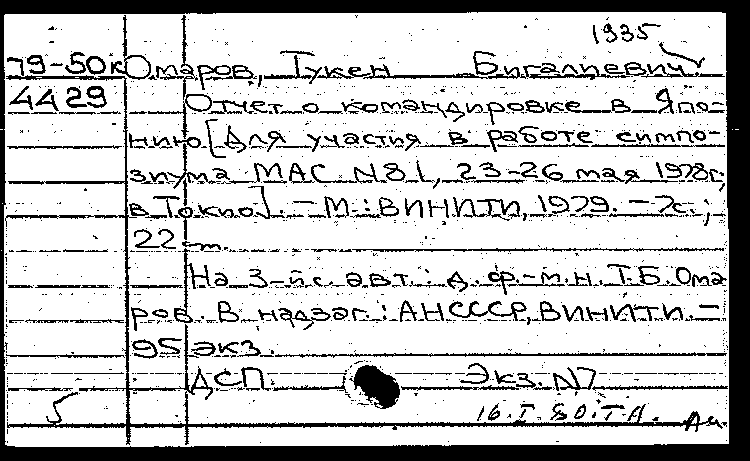 1935
79-50к Омаров, Тукен Бигалиевич.
4429 Отчет о командировке в Япо-
нию [Для участия в работе симпо-
зиума МАС N81, 23-26 мая 1978г.,
в Токио]. - М.: ВИНИТИ, 1979. - 7с.;
22 см.
На 3-й с. авт.: д. ф.-м.н. Т.Б. Ома
ров. В надзаг.: АН СССР, ВИНИТИ. -
95 экз.
ДСП. Экз. N7
5 16.I.80.